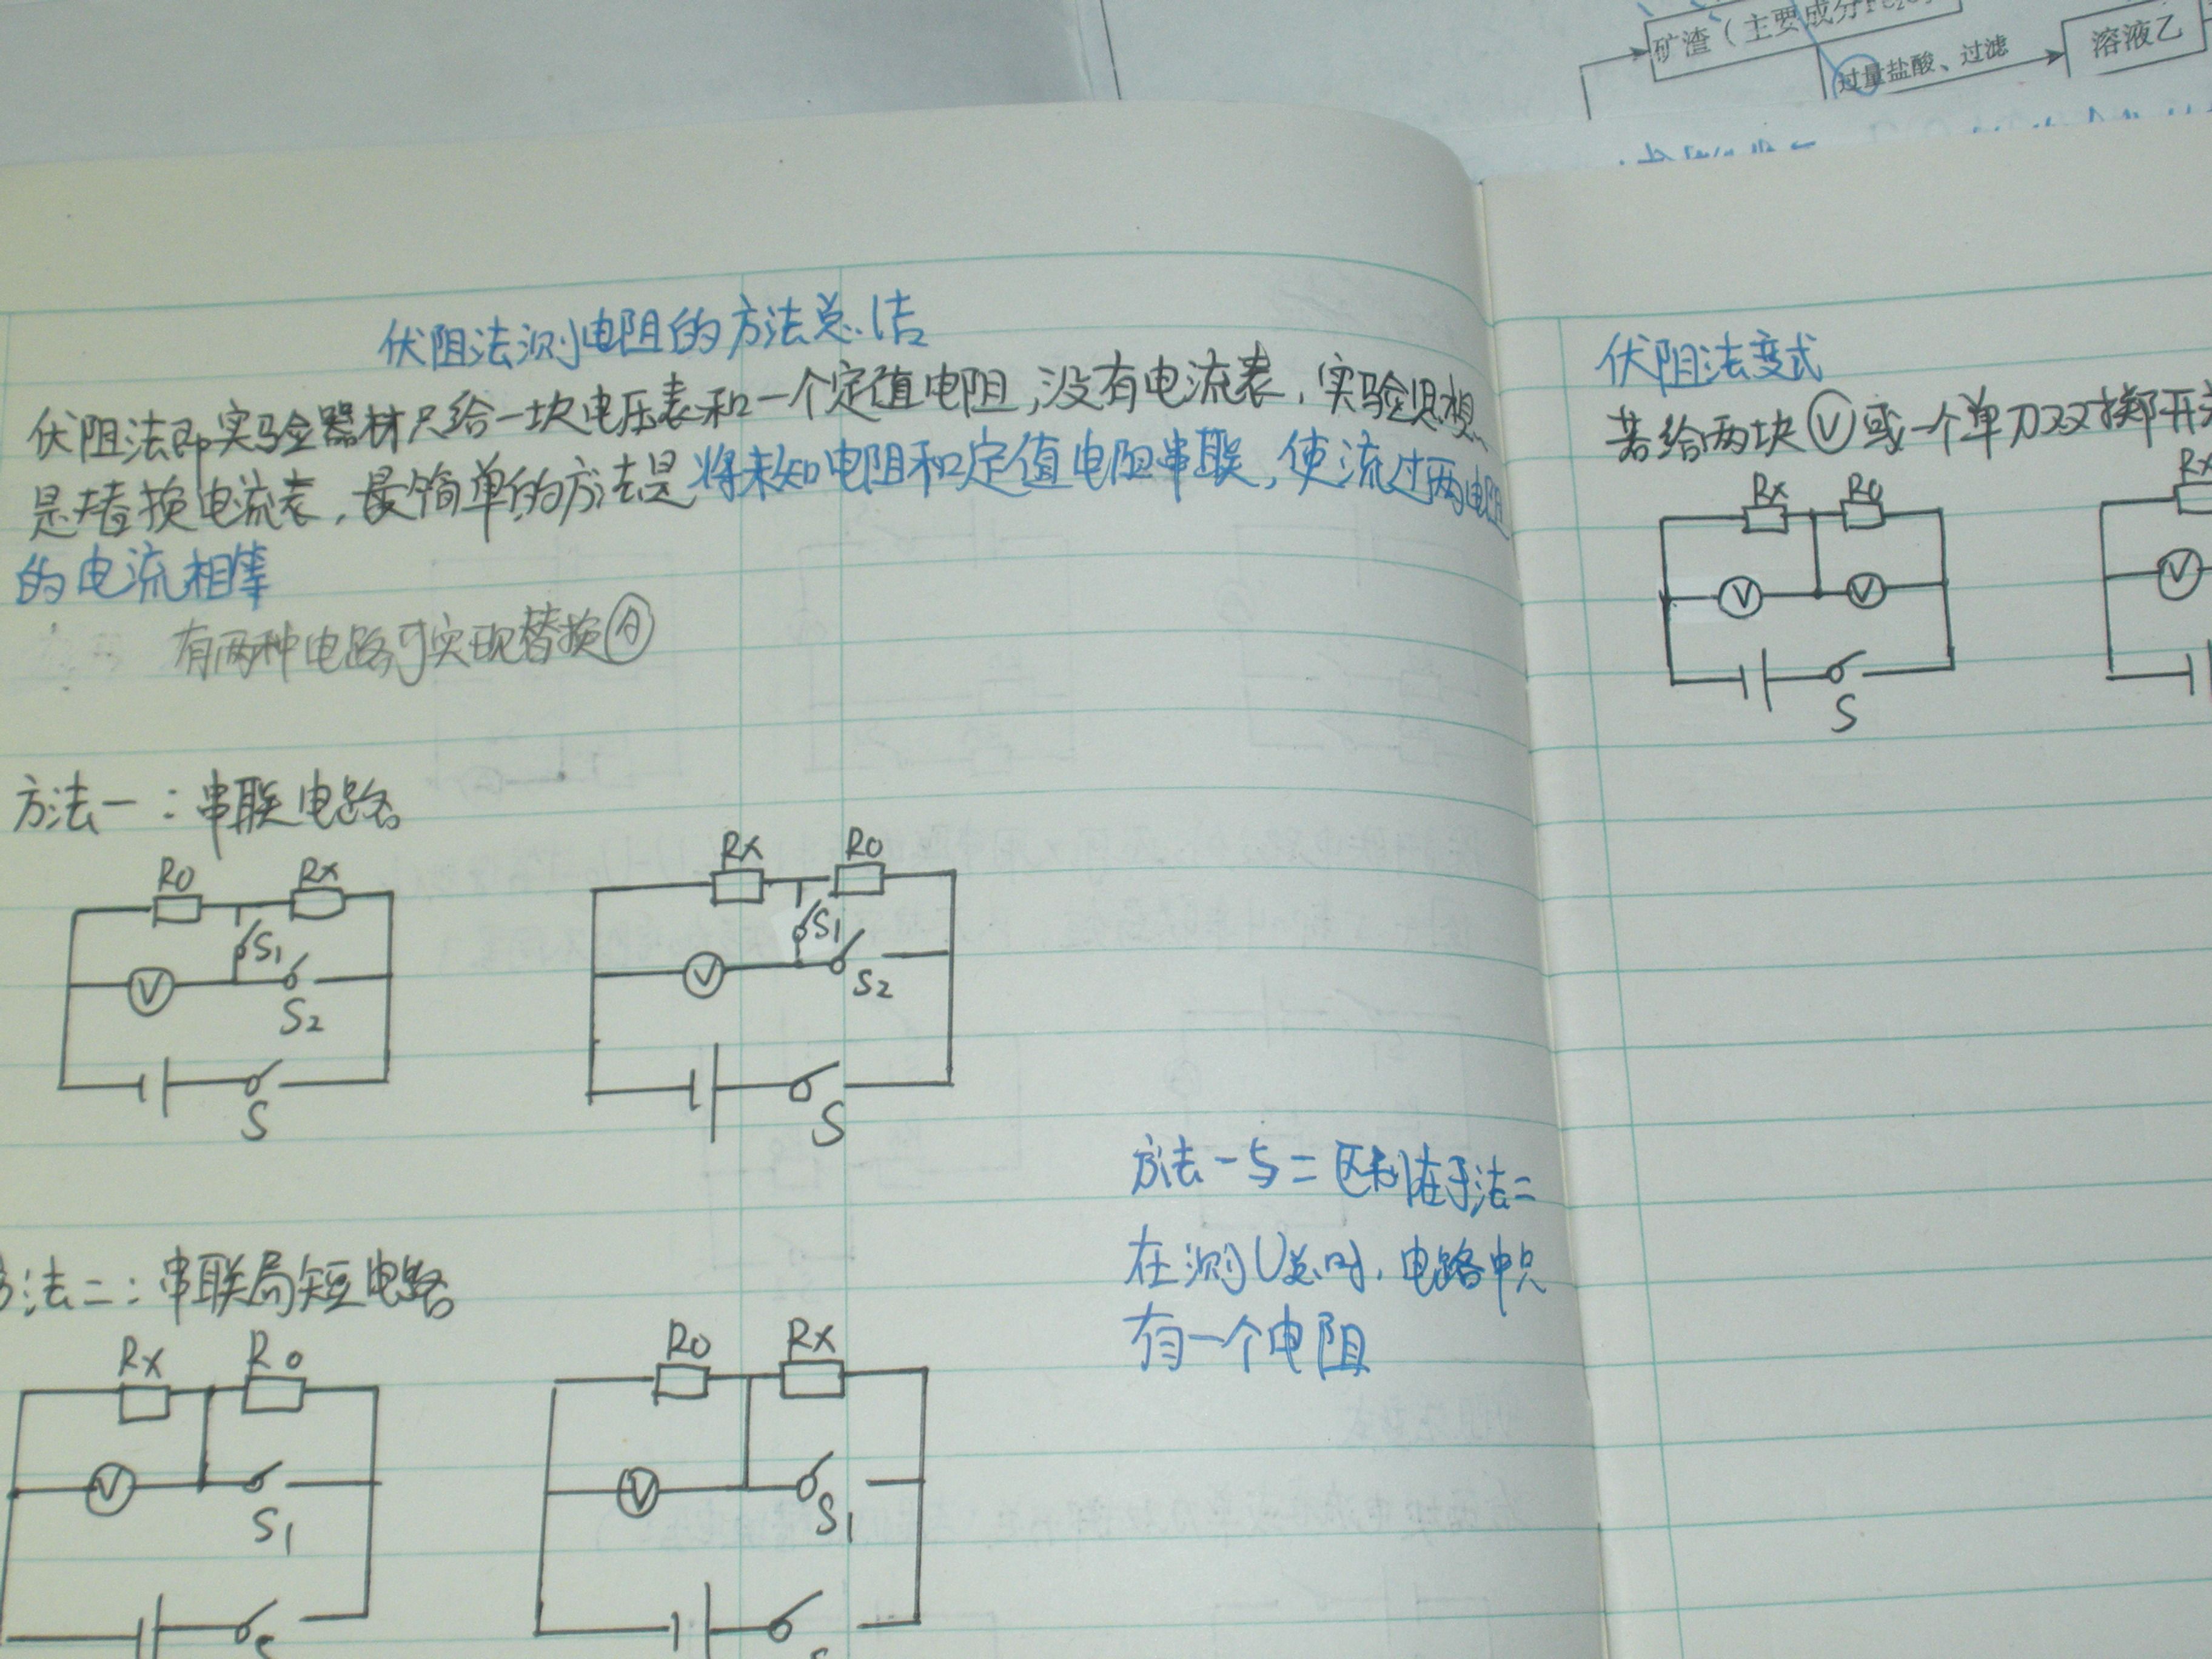 矿渣（主要成分Fe₂O
过量盐酸、过滤
溶液乙
伏阻法测电阻的方法总结
伏阻法即实验器材只给一块电压表和一个定值电阻，没有电流表，实验思想
是替换电流表，最简单的方法是将未知电阻和定值电阻串联，使流过两电阻
的电流相等
有两种电路可实现替换Ⓐ
方法一：串联电路
R0 Rx
S1
V
S2
S
Rx R0
S1
V
S2
S
方法一与二区别在于法二
在测U总时，电路中只
有一个电阻
方法二：串联局短电路
Rx R0
V
S1
R0 Rx
V
S1
伏阻法变式
若给两块Ⓥ或一个单刀双掷开关
Rx R0
V V
S
Rx
V